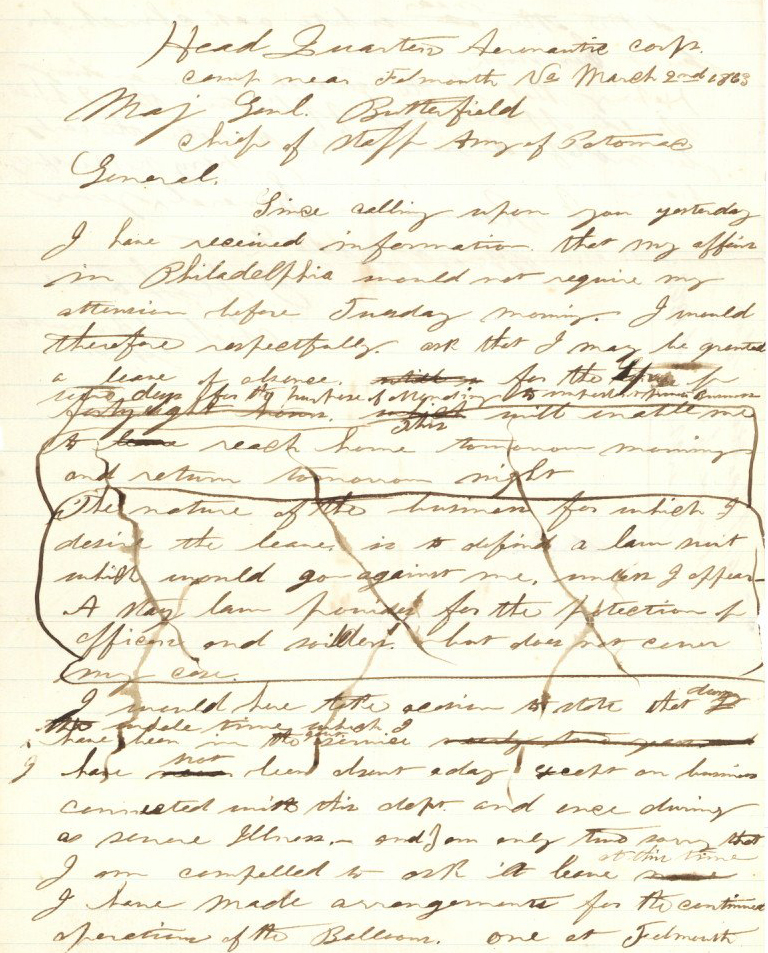 Head Quarters Aeronautic corps.
camp near Falmouth Va March 2nd 1863
Maj Genl. Butterfield
chief of staff Army of Potomac
General.
Since calling upon you yesterday
I have received information that my affairs
in Philadelphia would not require my
attension before Tuesday morning. I would
therefore respectfully. ask that I may be granted
a leave of absence. for the
days for the purpose of attending to important business
forty eight hours. This will enable me
to leave reach home tomorrow morning
and return tomorrow night
The nature of the business for which I
desire the leave, is to defend a law suit
which would go against me, unless I appear
A stay law provides for the protection of
officers and soldiers. but does not cover
my case.
I would here take occasion to state that during
the whole time which I
have been in the service nearly two years
I have not been absent a day except on business
connected with this dept. and once during
a severe Illness. and I am only two sorry that
I am compelled to ask it leave at this time
I have made arrangements for the continued
operations of the Balloons. one at Falmouth